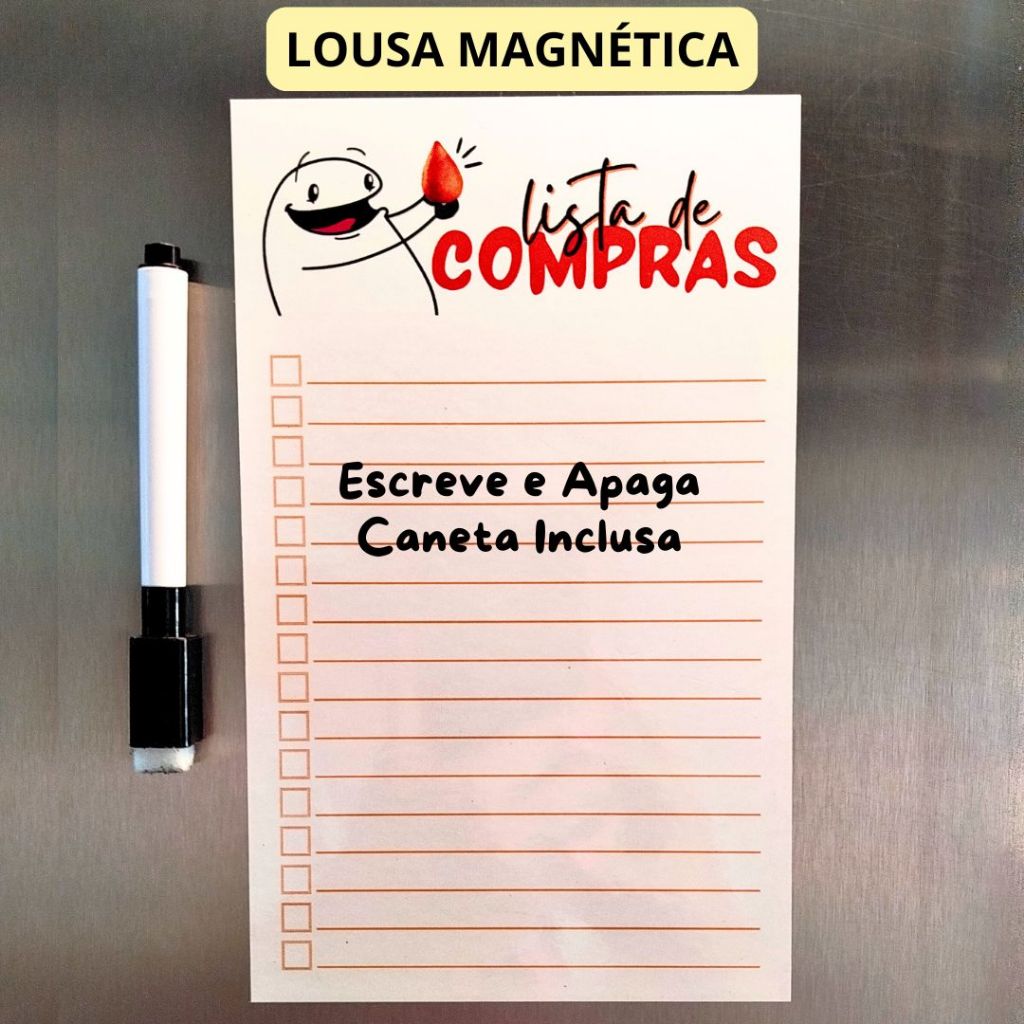 LOUSA MAGNÉTICA
lista de
COMPRAS
Escreve e Apaga
Caneta Inclusa